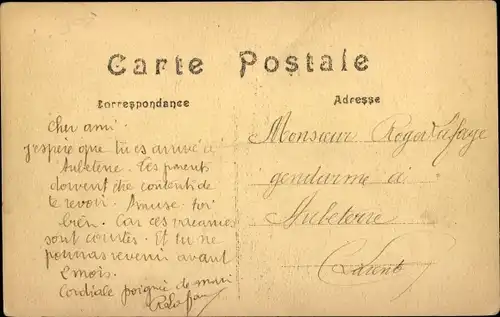 Carte Postale
Correspondance
Adresse
Cher ami
j'espère que tu es arrivé à
Aubeterre. Tes parents
doivent être contents de
te revoir. Amuse toi
bien. Car ces vacances
sont courtes. Et tu ne
pourras revenir avant
2 mois.
Cordiale poignée de main
Monsieur Roger Lafaye
gendarme à
Aubeterre